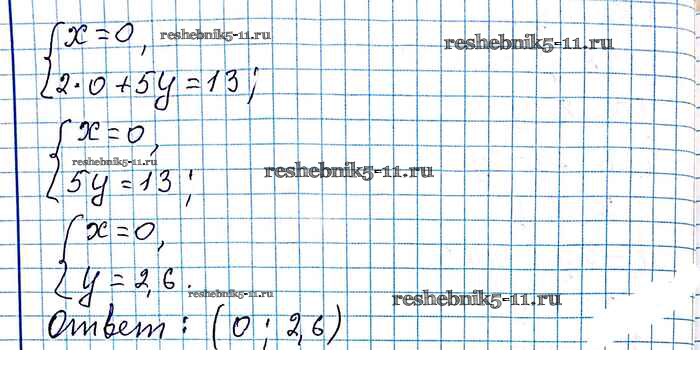 x = 0, reshebnik5-11.ru
reshebnik5-11.ru
2 · 0 + 5y = 13;
x = 0,
reshebnik5-11.ru
reshebnik5-11.ru
5y = 13;
x = 0,
y = 2,6.
reshebnik5-11.ru
reshebnik5-11.ru
Ответ: (0; 2,6)